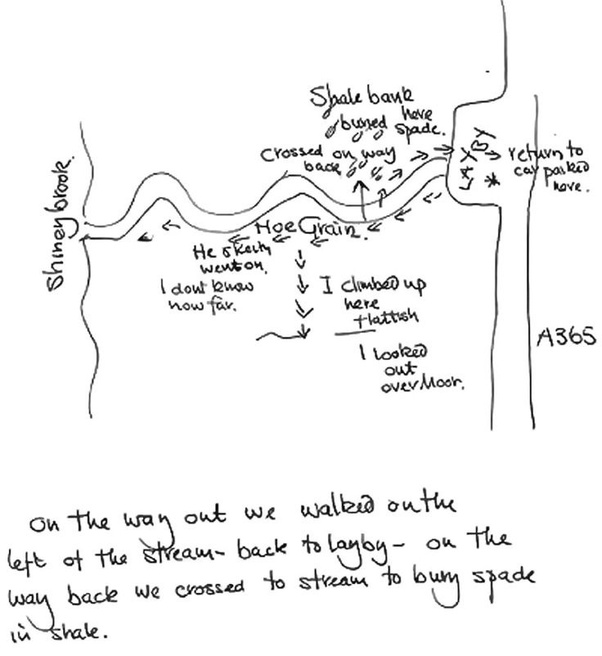 Shale bank
buried here
spade.
Crossed on way
back
return to
car parked
here.
Shiney brook.
Hoe Grain.
went on.
I dont know
how far.
I climbed up
here
flattish
I looked
out
over Moor.
A365
On the way out we walked on the
left of the stream - back to layby - on the
way back we crossed to stream to bury spade
in shale.